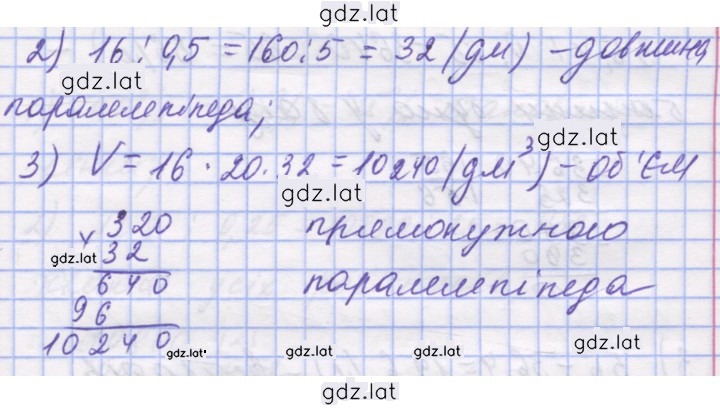 gdz.lat
2) 16 : 0,5 = 160 : 5 = 32 (дм) – довжина
gdz.lat gdz.lat
паралелепіпеда;
gdz.lat
3) V = 16 · 20 · 32 = 10240 (дм³) – об'єм
gdz.lat
320 прямокутного
gdz.lat × 32
640 паралелепіпеда
96
10240
gdz.lat gdz.lat gdz.lat gdz.lat
gdz.lat